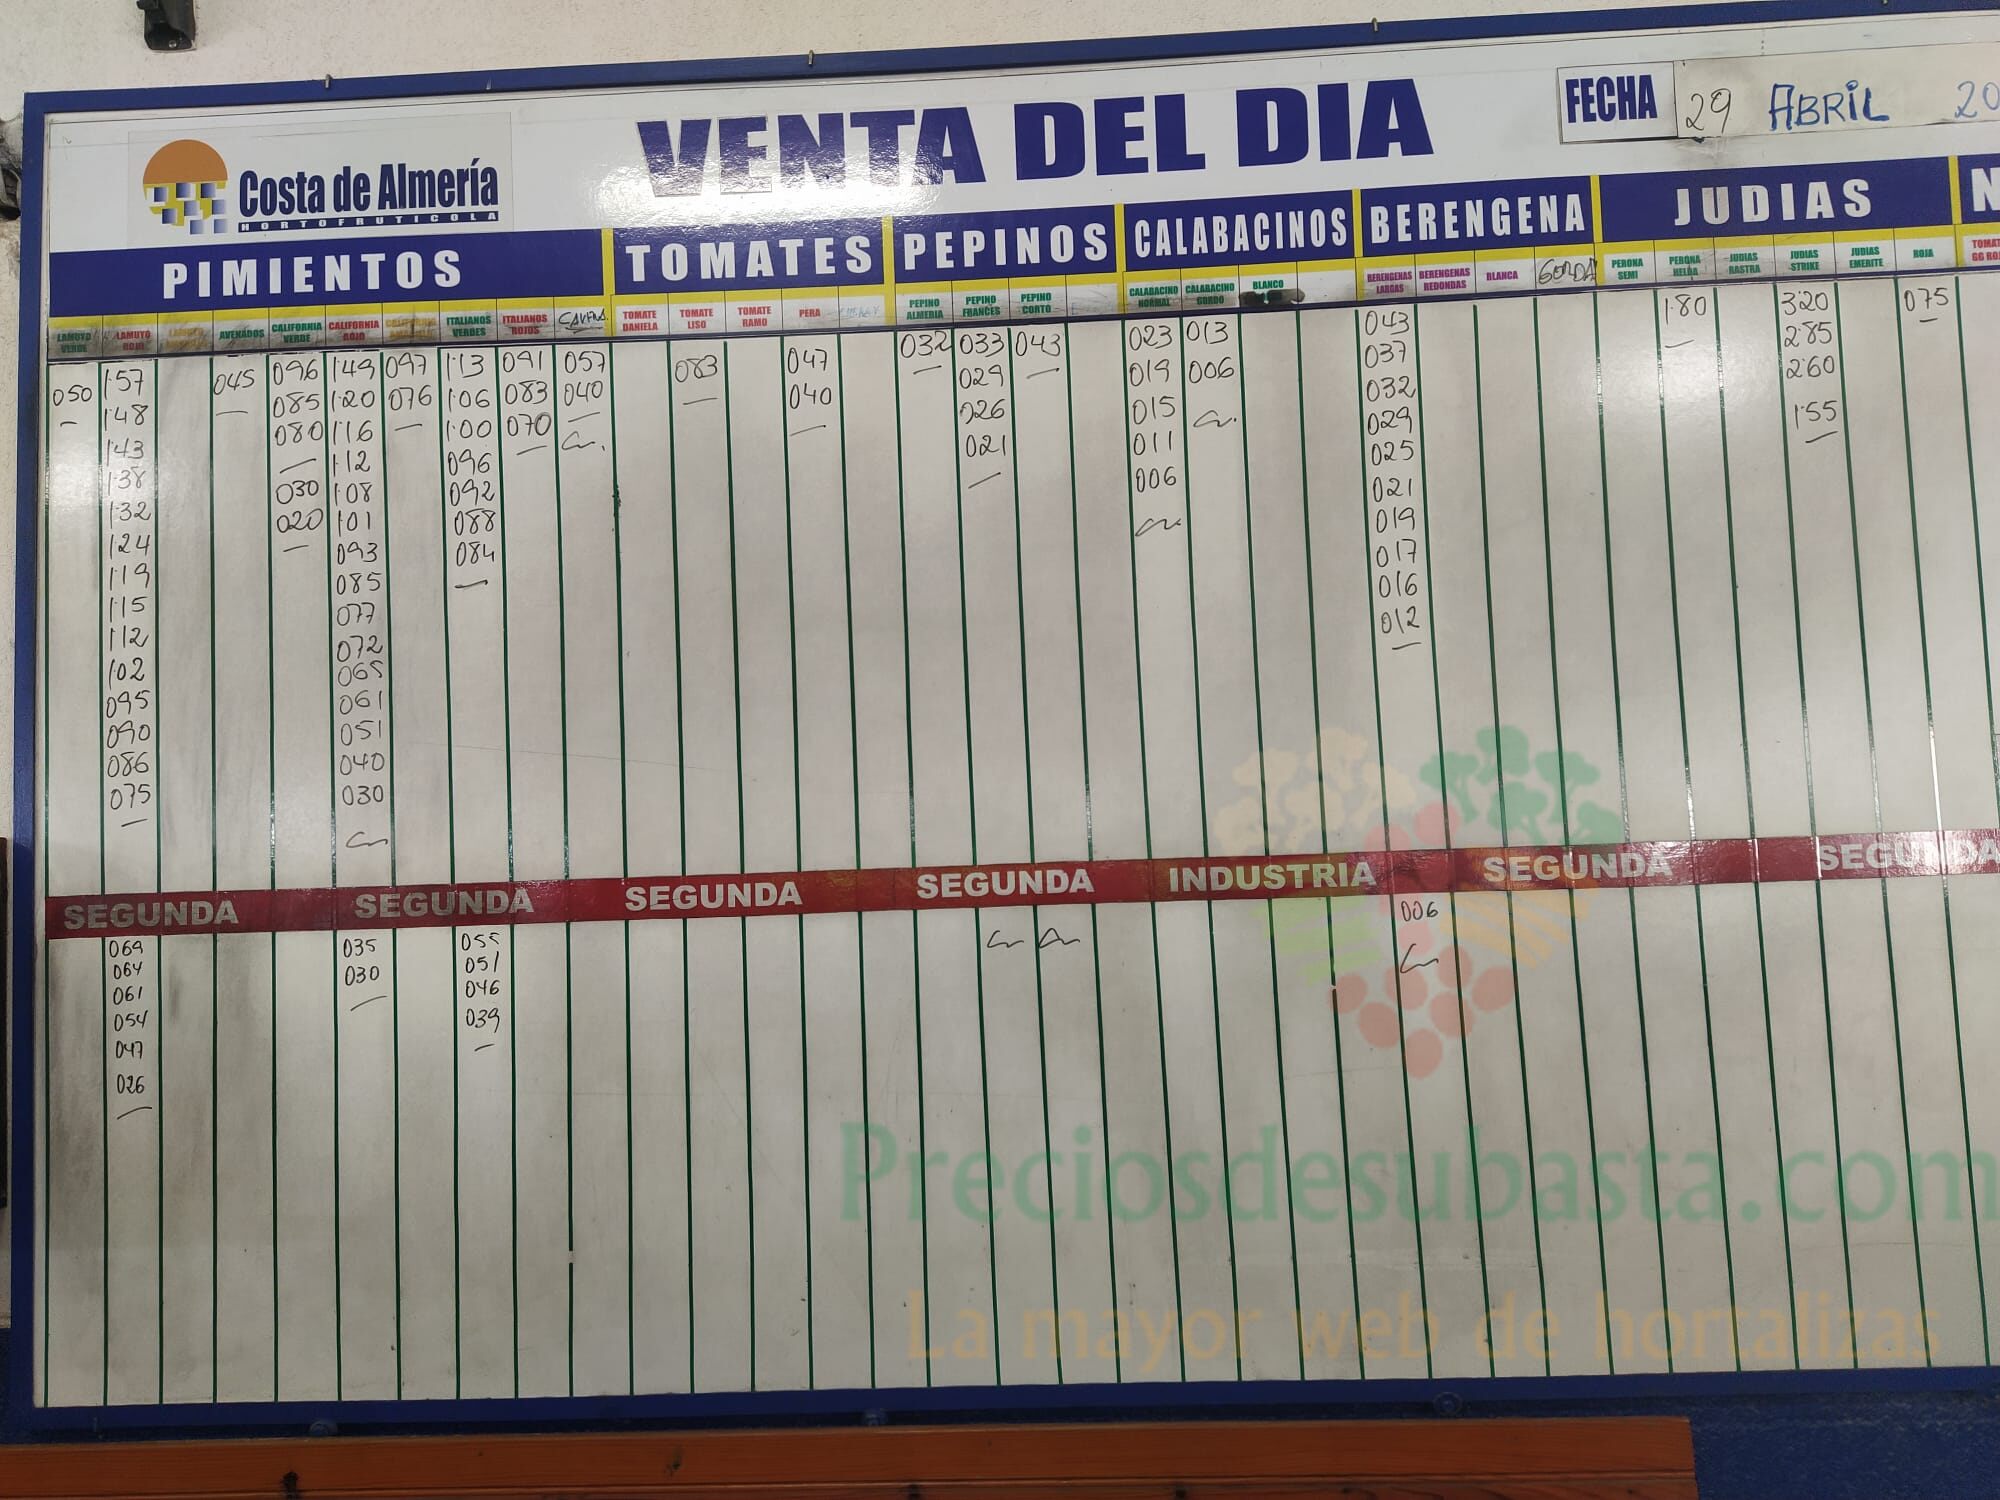 VENTA DEL DIA
FECHA 29 ABRIL 20
Costa de Almería
HORTOFRUTICOLA
PIMIENTOS TOMATES PEPINOS CALABACINOS BERENGENA JUDIAS N
LAMUYO VERDE
LAMUYO ROJO
AVENADOS
CALIFORNIA VERDE
CALIFORNIA ROJO
CALIFORNIA AMARILLO
ITALIANOS VERDES
ITALIANOS ROJOS
TOMATE DANIELA
TOMATE LISO
TOMATE RAMO
PERA
PEPINO ALMERIA
PEPINO FRANCES
PEPINO CORTO
CALABACINO NORMAL
CALABACINO GORDO
BLANCO
BERENGENAS LARGAS
BERENGENAS REDONDAS
BLANCA
GORDA
PERONA SEMI
PERONA HELDA
JUDIAS RASTRA
JUDIAS STRIKE
JUDIAS EMERITE
ROJA
TOMAT
GG RO
050
1'57
1'48
1'43
1'38
1'32
1'24
1'19
1'15
1'12
1'02
095
090
086
075
045
096
085
080
030
020
1'49
1'20
1'16
1'12
1'08
1'01
093
085
077
072
065
061
051
040
030
097
076
1'13
1'06
1'00
096
092
088
084
091
083
070
057
040
083
047
040
032
033
029
026
021
043
023
019
015
011
006
013
006
043
037
032
029
025
021
019
017
016
012
1'80
3'20
2'85
2'60
1'55
075
SEGUNDA SEGUNDA SEGUNDA SEGUNDA INDUSTRIA SEGUNDA SEGUNDA
069
064
061
054
047
026
035
030
055
051
046
039
006
Preciosdesubasta.com
La mayor web de hortalizas